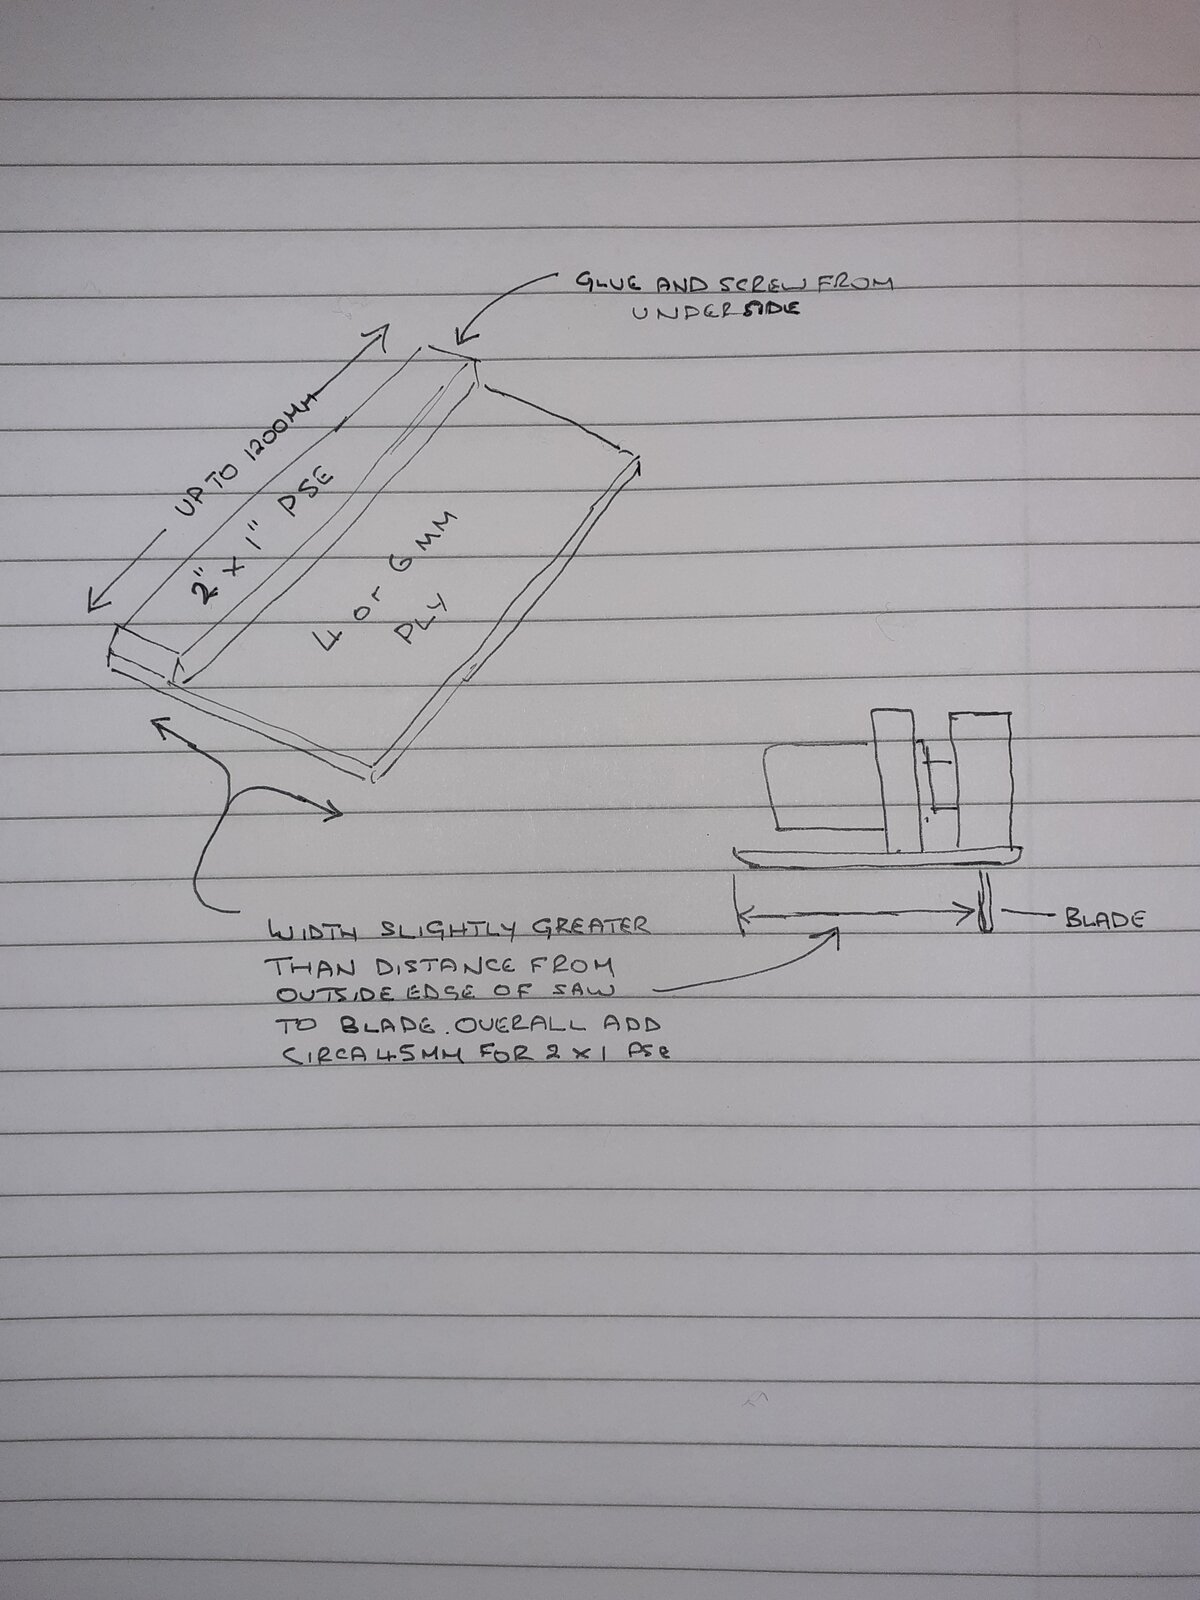 GLUE AND SCREW FROM
UNDERSIDE
UP TO 1200MM
2" X 1" PSE
4 or 6 MM
PLY
WIDTH SLIGHTLY GREATER
THAN DISTANCE FROM
OUTSIDE EDGE OF SAW
TO BLADE. OVERALL ADD
CIRCA 45MM FOR 2 X 1 PSE
BLADE